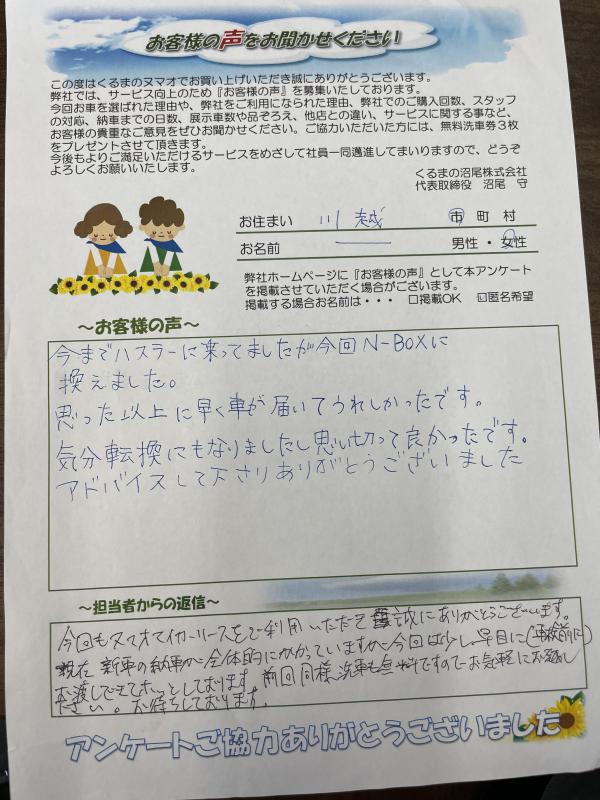 お客様の声をお聞かせください
この度はくるまのヌマオでお買い上げいただき誠にありがとうございます。
弊社では、サービス向上のため『お客様の声』を募集いたしております。
今回お車を選ばれた理由や、弊社をご利用になられた理由、弊社でのご購入回数、スタッフ
の対応、納車までの日数、展示車数や品ぞろえ、他店との違い、サービスに関する事など、
お客様の貴重なご意見をぜひお聞かせください。ご協力いただいた方には、無料洗車券３枚
をプレゼントさせて頂きます。
今後もよりご満足いただけるサービスをめざして社員一同邁進してまいりますので、どうぞ
よろしくお願いいたします。
くるまの沼尾株式会社
代表取締役 沼尾 守
お住まい 川越 市 町 村
お名前 男性・女性
弊社ホームページに『お客様の声』として本アンケート
を掲載させていただく場合がございます。
掲載する場合お名前は・・・ □掲載OK ☑匿名希望
～お客様の声～
今までハスラーに乗ってましたが今回N-BOXに
換えました。
思った以上に早く車が届いてうれしかったです。
気分転換にもなりましたし思い切って良かったです。
アドバイスして下さりありがとうございました
～担当者からの返信～
今回もヌマオマイカーリースをご利用いただき誠にありがとうございます。
現在 新車の納車が全体的にかかっていますが今回は少し早目に(車検前に)
お渡しできてホッとしております 前回同様洗車も無料ですのでお気軽にお越し
ださい。お待ちしております。
アンケートご協力ありがとうございました